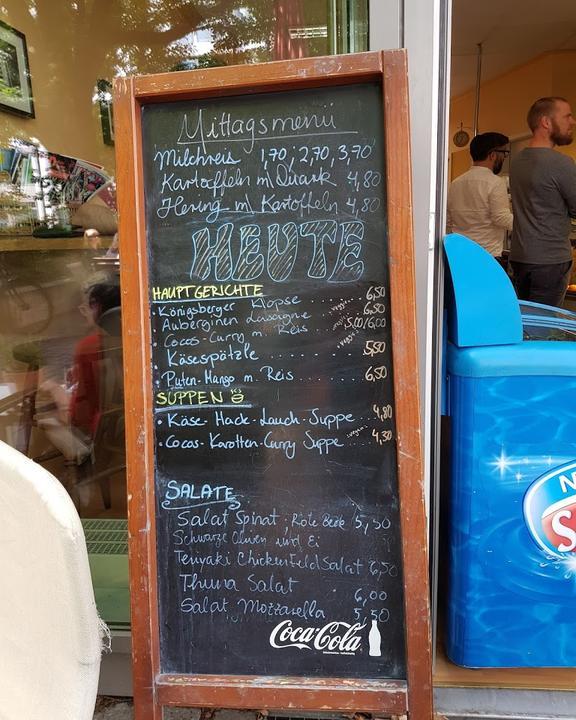 Mittagsmenü
Milchreis 1,70, 2,70, 3,70
Kartoffeln m. Quark 4,80
Hering m. Kartoffeln 4,80
HEUTE
HAUPTGERICHTE
• Königsberger Klopse ........ 6,50
• Auberginen Lasagne vegi. 6,50
• Cocos-Curry m. Reis vegan 5,00/6,00
• Käsespätzle ........ 5,50
• Puten-Mango m. Reis 6,50
SUPPEN
• Käse-Hack-Lauch-Suppe .. 4,80
• Cocos-Karotten-Curry Suppe vegan 4,30
SALATE
Salat Spinat, Rote Beete 5,50
Schwarze Oliven und Ei
Teriyaki Chicken Feld Salat 6,50
Thuna Salat 6,00
Salat Mozzarella 5,50
Coca-Cola
N
S